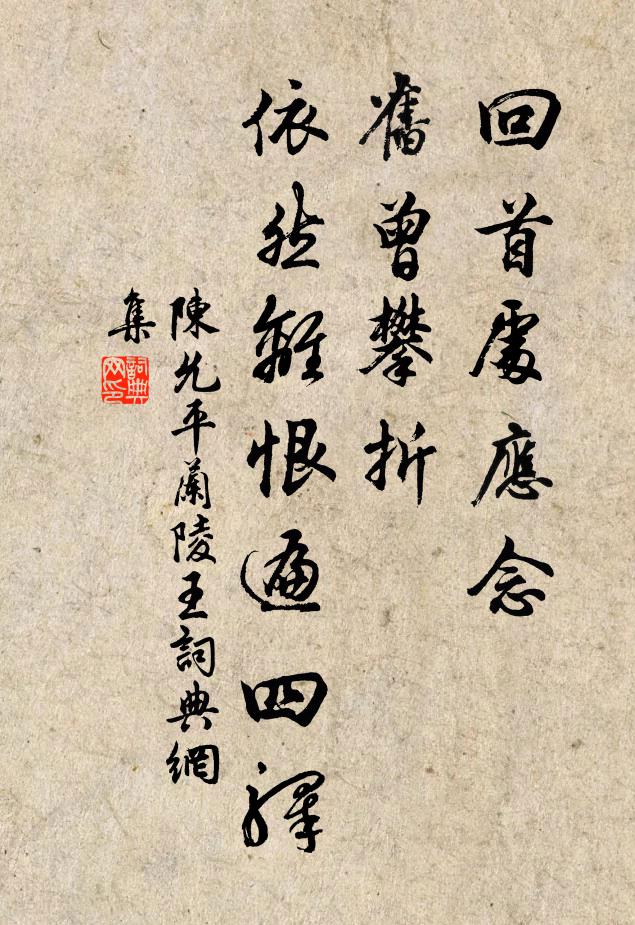 回首處應念
舊曾攀折
依然離恨遍四驛
陳允平蘭陵王詞典網
集
詞典网印